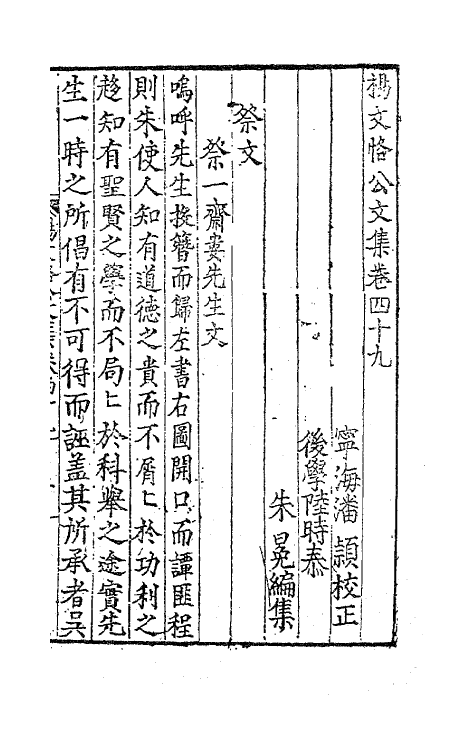 楊文恪公文集卷四十九
寧海潘 頴校正
後學陸時泰
朱 冕編集
祭文
祭一齋婁先生文
嗚呼先生投簪而歸左書右圖開口而譚匪程
則朱使人知有道德之貴而不屑〻於功利之
趍知有聖賢之學而不局〻於科舉之途實先
生一時之所倡有不可得而誣盖其所承者吳